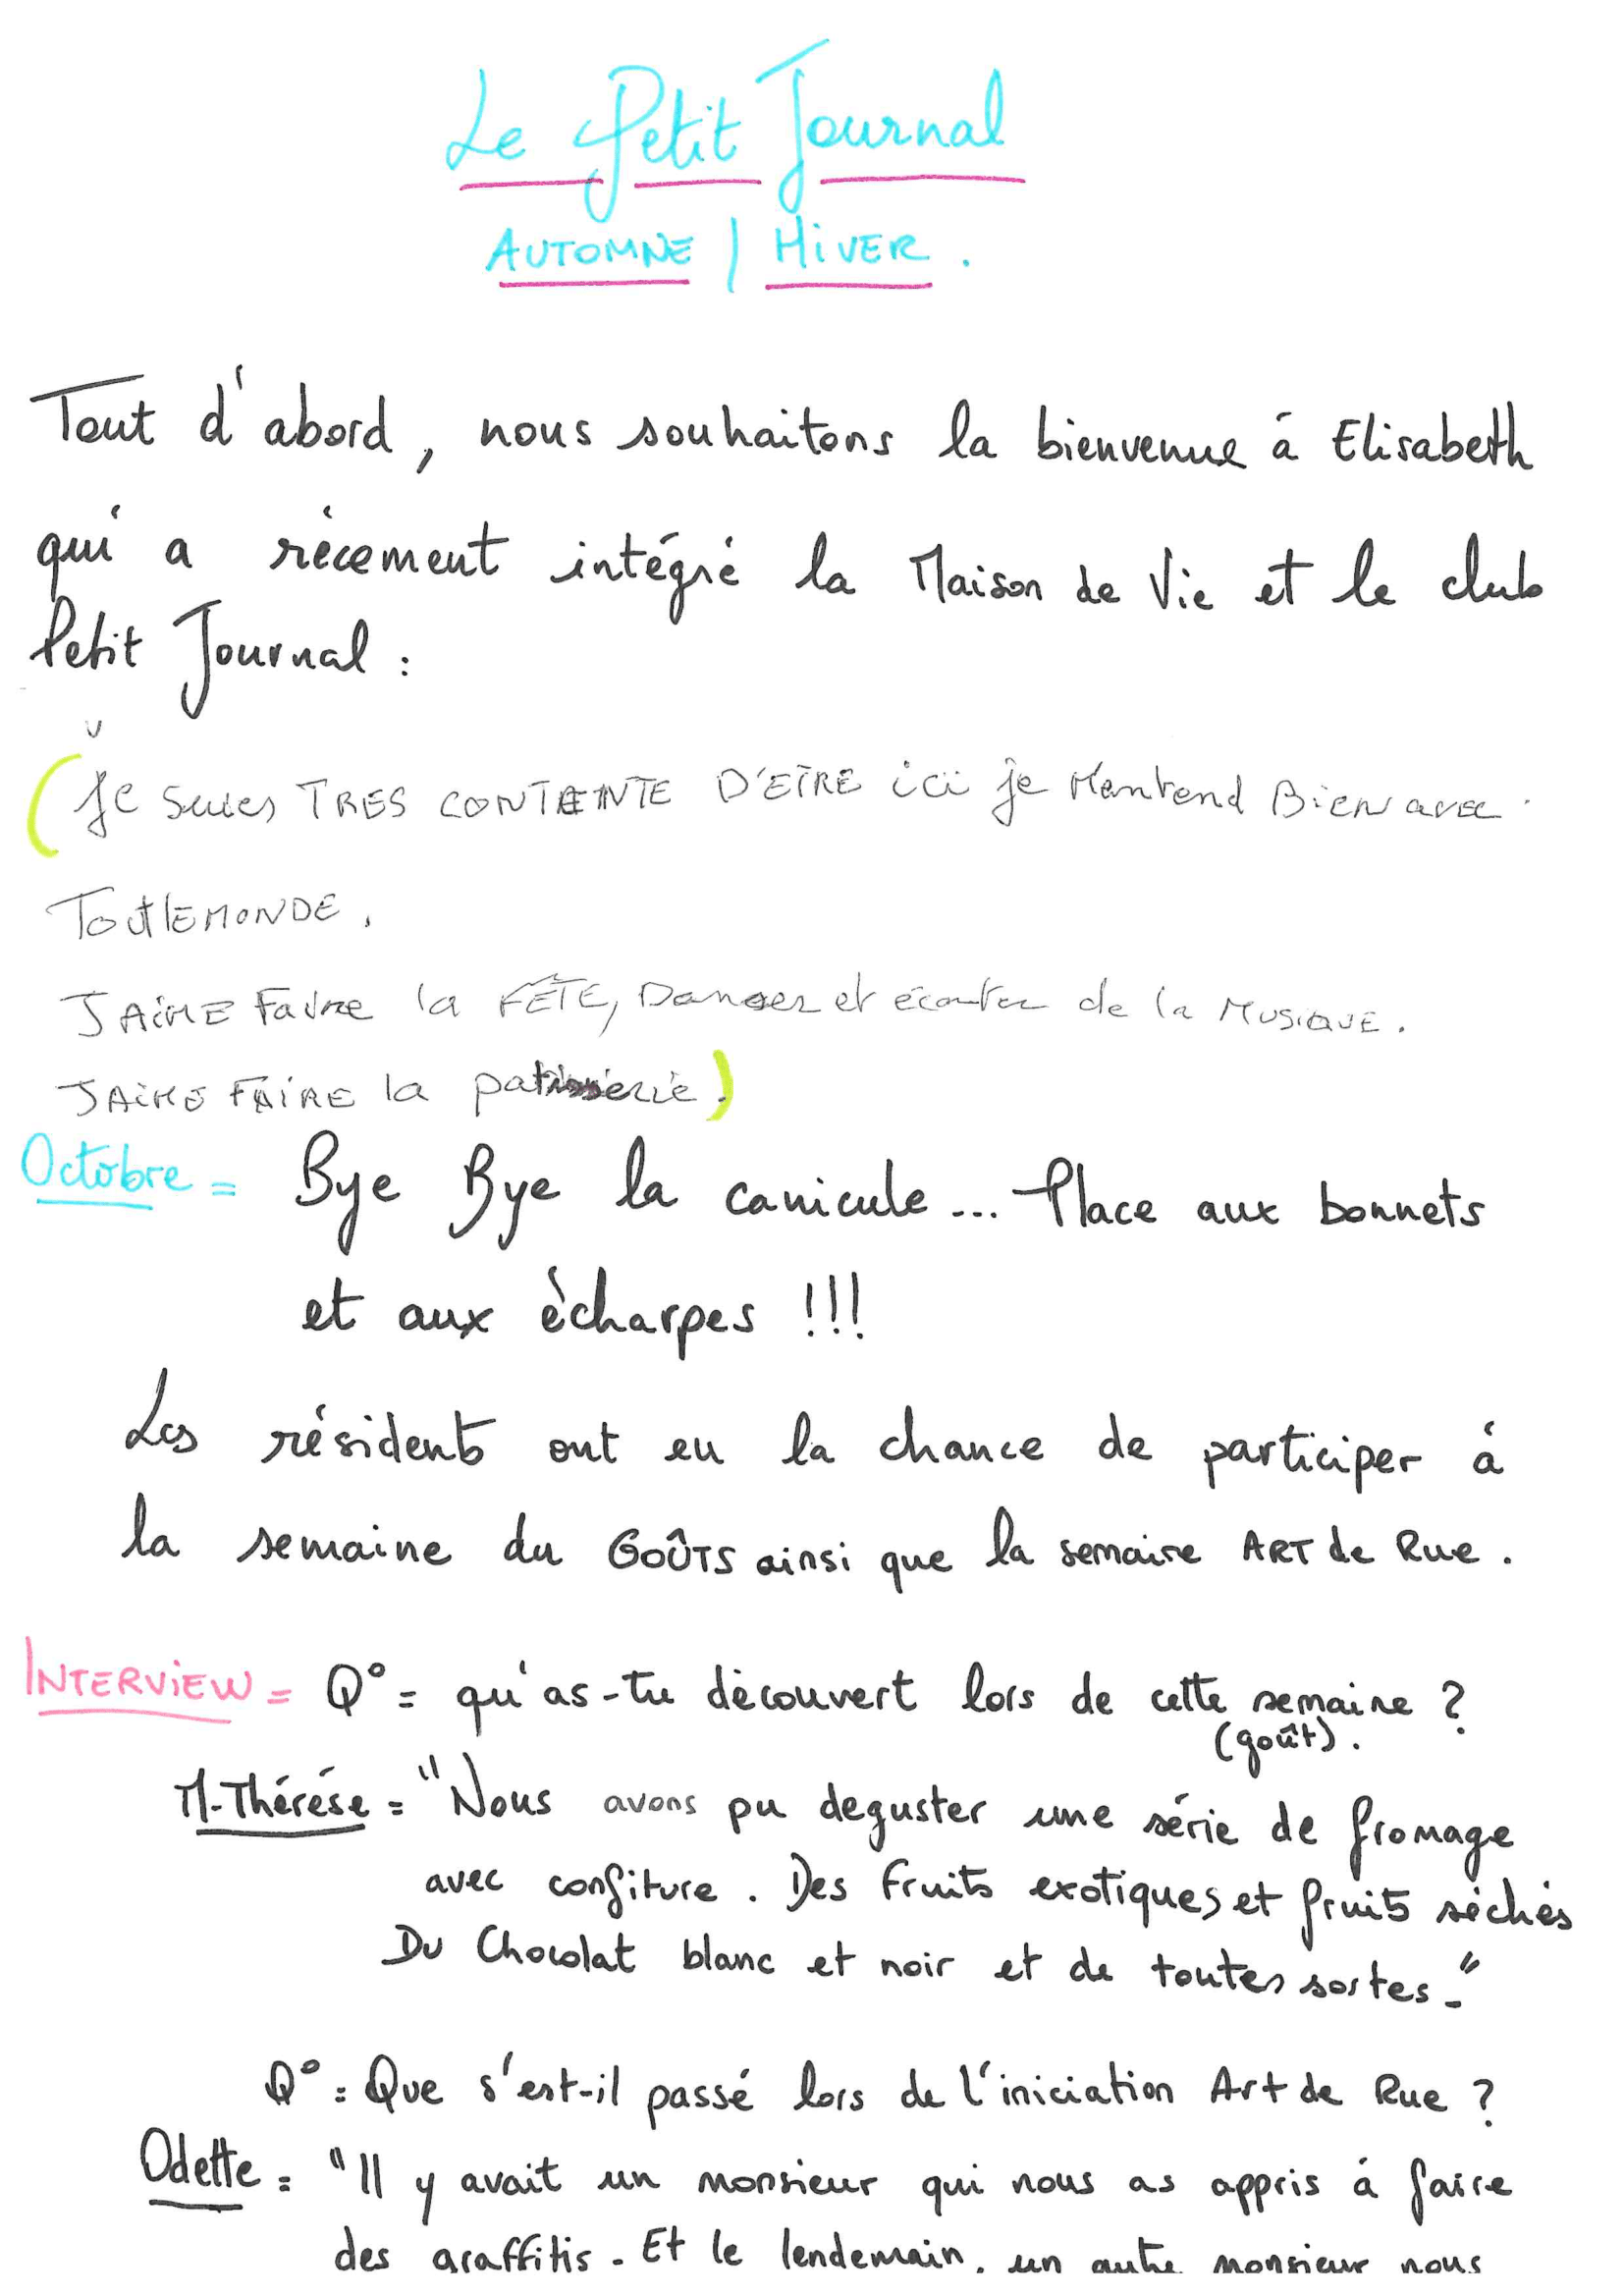 Le Petit Journal
AUTOMNE / HiVER.
Tout d'abord, nous souhaitons la bienvenue à Elisabeth
qui a récement intégré la Maison de Vie et le club
Petit Journal :
(je suies TRES CONTENTE D'ETRE ici je Mentend Bien avec
TOUtlEMONDE.
JAiME FAire la FÊTE, Danser et écouter de la MUSiQUE.
JAiME FAiRE la patisserie.)
Octobre = Bye Bye la canicule... Place aux bonnets
et aux écharpes !!!
Les résidents ont eu la chance de participer à
la semaine du GOÛTS ainsi que la semaine ART de Rue.
INTERViEW = Q° = qu'as-tu découvert lors de cette semaine ?
(goût).
M-Thérése = "Nous avons pu deguster une série de fromage
avec confiture. Des fruits exotiques et fruits séchés
Du Chocolat blanc et noir et de toutes sortes."
Q° = Que s'est-il passé lors de l'iniciation Art de Rue ?
Odette = "Il y avait un monsieur qui nous as appris à faire
des graffitis. Et le lendemain, un autre monsieur nous